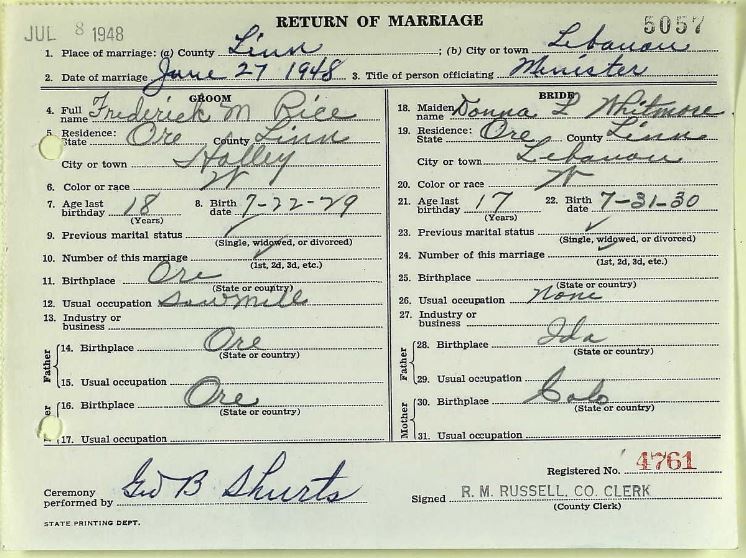 JUL 8 1948
RETURN OF MARRIAGE
5057
1. Place of marriage: (a) County Linn ; (b) City or town Lebanon
2. Date of marriage June 27 1948 3. Title of person officiating Minister
GROOM
4. Full name Frederick M Rice
5. Residence: State Ore County Linn
City or town Holley
6. Color or race W
7. Age last birthday 18 (Years) 8. Birth date 7-22-29
9. Previous marital status ✓
(Single, widowed, or divorced)
10. Number of this marriage ✓
(1st, 2d, 3d, etc.)
11. Birthplace Ore
(State or country)
12. Usual occupation Sawmill
13. Industry or business
Father
14. Birthplace Ore
(State or country)
15. Usual occupation
16. Birthplace Ore
(State or country)
17. Usual occupation
BRIDE
18. Maiden name Donna L Whitmore
19. Residence: State Ore County Linn
City or town Lebanon
20. Color or race W
21. Age last birthday 17 (Years) 22. Birth date 7-31-30
23. Previous marital status ✓
(Single, widowed, or divorced)
24. Number of this marriage ✓
(1st, 2d, 3d, etc.)
25. Birthplace
(State or country)
26. Usual occupation None
27. Industry or business
Father
28. Birthplace Ida
(State or country)
29. Usual occupation
Mother
30. Birthplace Colo
(State or country)
31. Usual occupation
Ceremony performed by Geo B Shurts
Registered No. 4761
Signed R. M. RUSSELL, CO. CLERK
(County Clerk)
STATE PRINTING DEPT.